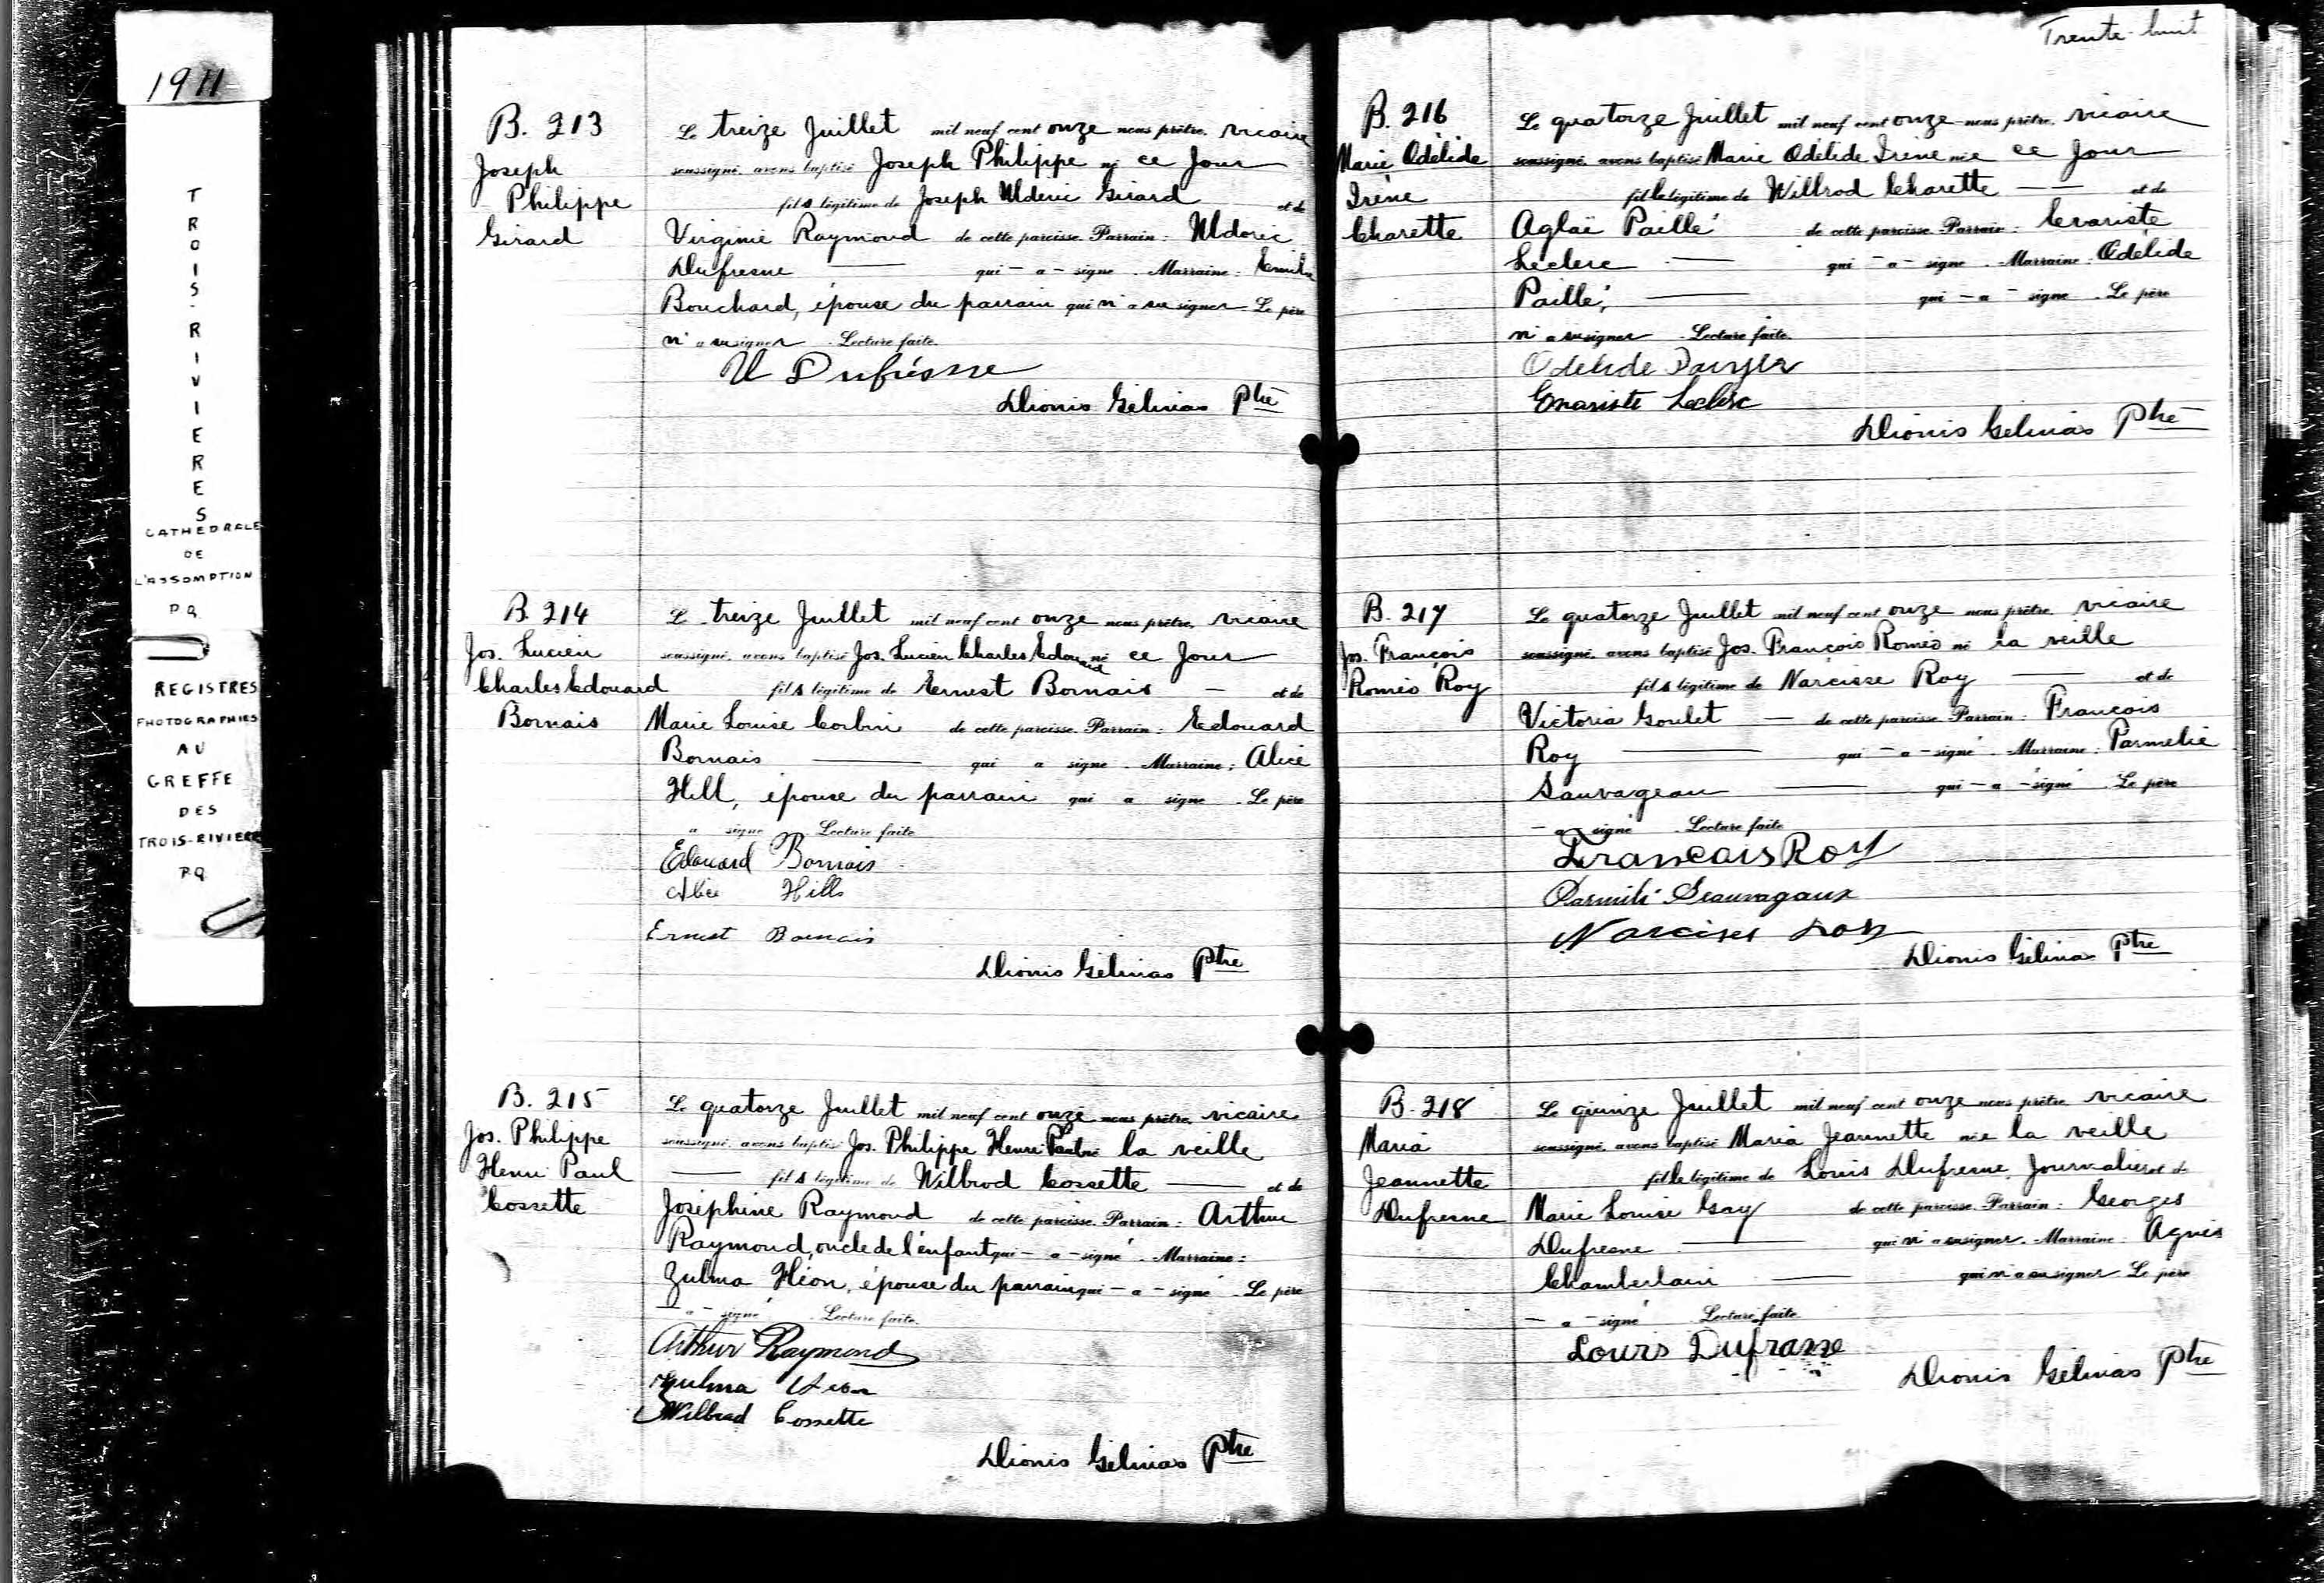 1911
TROIS-RIVIERES
CATHEDRALE
DE
L'ASSOMPTION
P.Q.
REGISTRES
PHOTOGRAPHIES
AU
GREFFE
DES
TROIS-RIVIERES
P.Q.
B. 213
Joseph
Philippe
Girard
Le treize Juillet mil neuf cent onze nous prêtre, vicaire
soussigné, avons baptisé Joseph Philippe né ce Jour
fils légitime de Joseph Uldéric Girard et de
Virginie Raymond de cette paroisse. Parrain: Uldoric
Dufresne qui - a - signé. Marraine:
Bouchard, épouse du parrain qui n'a su signer. Le père
n'a su signer. Lecture faite.
U Dufresne
Dionis Gélinas Ptre
B. 214
Jos. Lucien
Charles Edouard
Bornais
Le treize Juillet mil neuf cent onze nous prêtre, vicaire
soussigné, avons baptisé Jos. Lucien Charles Edouard né ce Jour
fils légitime de Ernest Bornais - et de
Marie Louise Corbin de cette paroisse. Parrain: Edouard
Bornais qui a signé. Marraine: Alice
Hill, épouse du parrain qui a signé. Le père
a signé Lecture faite
Edouard Bornais
Alice Hills
Ernest Bornais
Dionis Gélinas Ptre
B. 215
Jos. Philippe
Henri Paul
Cossette
Le quatorze Juillet mil neuf cent onze nous prêtre, vicaire
soussigné, avons baptisé Jos. Philippe Henri Paul né la veille
fils légitime de Wilbrod Cossette et de
Joséphine Raymond de cette paroisse. Parrain: Arthur
Raymond, oncle de l'enfant qui - a - signé. Marraine:
Zulma Héon, épouse du parrain qui - a - signé. Le père
- a - signé. Lecture faite.
Arthur Raymond
Zulma Heon
Wilbrod Cossette
Dionis Gélinas Ptre
Trente-huit
B. 216
Marie Odélide
Irène
Charette
Le quatorze Juillet mil neuf cent onze nous prêtre, vicaire
soussigné, avons baptisé Marie Odélide Irène née ce Jour
fille légitime de Willrod Charette et de
Aglaé Paillé de cette paroisse. Parrain: Evariste
Leclerc qui - a - signé. Marraine: Odélide
Paillé, qui - a - signé. Le père
n'a su signer. Lecture faite.
Odelide
Evariste Leclerc
Dionis Gélinas Ptre
B. 217
Jos. François
Roméo Roy
Le quatorze Juillet mil neuf cent onze nous prêtre, vicaire
soussigné, avons baptisé Jos. François Roméo né la veille
fils légitime de Narcisse Roy et de
Victoria Goulet - de cette paroisse. Parrain: François
Roy qui - a - signé. Marraine: Parmelie
Sauvageau qui - a - signé. Le père
- a signé. Lecture faite
Francois Roy
Parmili Seauvagaux
Narcisse Roy
Dionis Gélinas Ptre
B. 218
Maria
Jeannette
Dufresne
Le quinze Juillet mil neuf cent onze nous prêtre, vicaire
soussigné, avons baptisé Maria Jeannette née la veille
fille légitime de Louis Dufresne, Journalier et de
Marie Louise Gay de cette paroisse. Parrain: Georges
Dufresne qui n'a su signer. Marraine: Agnès
Chamberlain qui n'a su signer. Le père
- a - signé Lecture faite
Louis Dufrasne
Dionis Gélinas Ptre